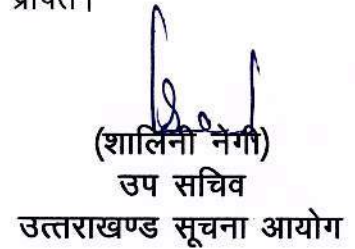 (शालिनी नेगी)
उप सचिव
उत्तराखण्ड सूचना आयोग